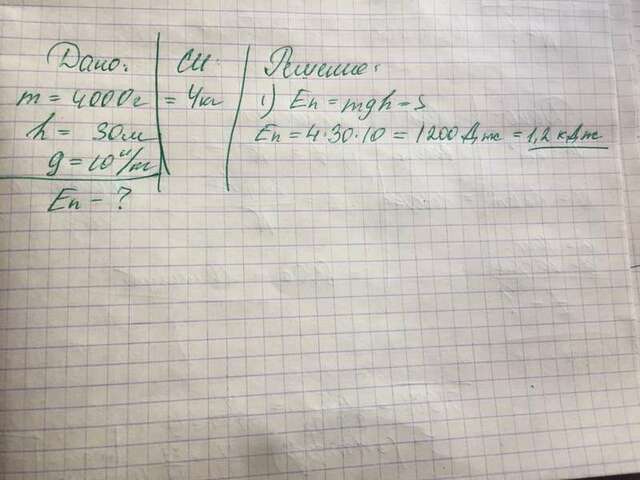 Дано:
m = 4000г
h = 30м
g = 10 н/кг
Eп - ?
СИ:
= 4кг
Решение:
1) Eп = mgh =>
Eп = 4·30·10 = 1200 Дж = 1,2 кДж